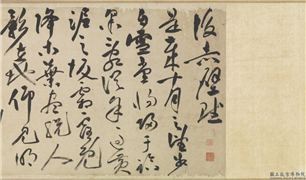 後赤壁賦
是歲十月之望步
自雪堂將歸于臨
皋二客從予過黃
泥之坂霜露既
降木葉盡脫人
影在地仰見明
國立故宮博物院